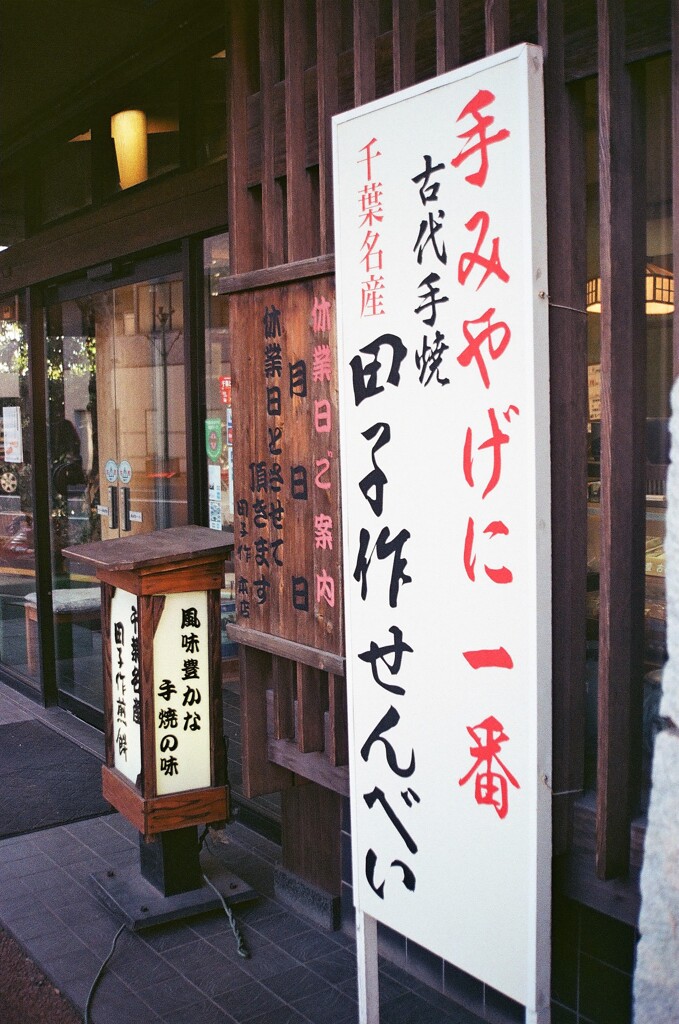 手みやげに一番
古代手焼
千葉名産
田子作せんべい
休業日ご案内
月日日
休業日とさせて
頂きます
田子作 本店
風味豊かな
手焼の味
千葉名産
田子作煎餅